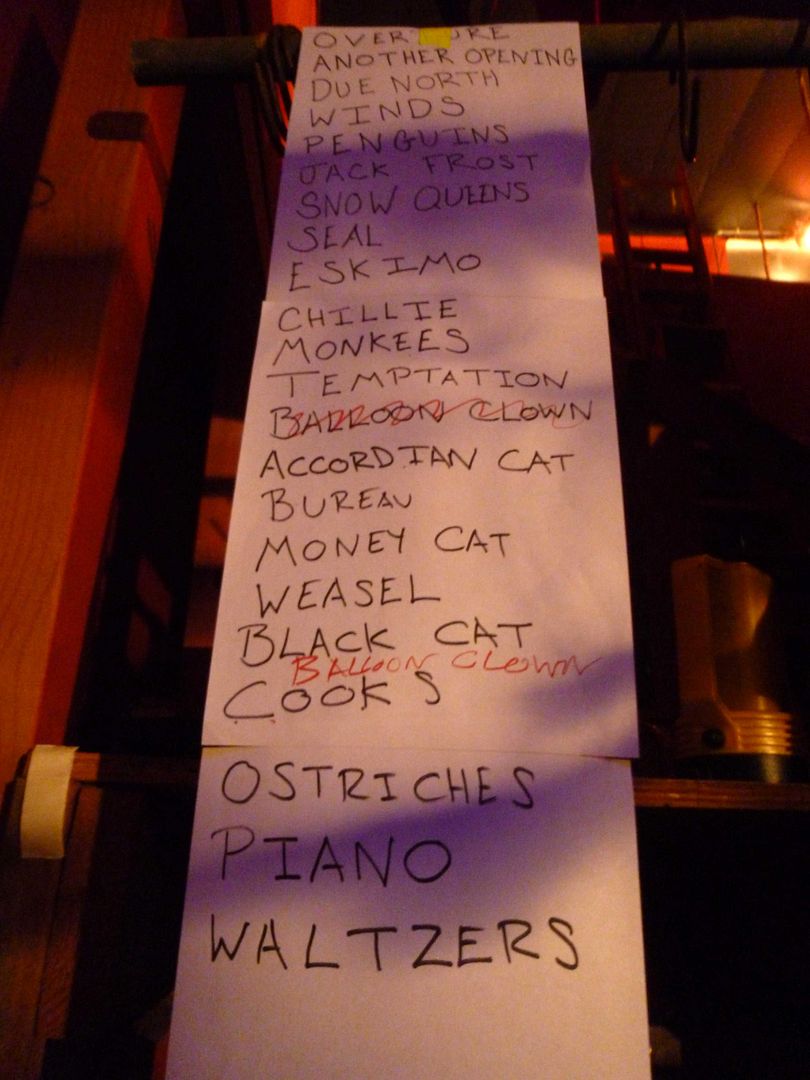 OVERTURE
ANOTHER OPENING
DUE NORTH
WINDS
PENGUINS
JACK FROST
SNOW QUEENS
SEAL
ESKIMO
CHILLIE
MONKEES
TEMPTATION
BALLOON CLOWN
ACCORDIAN CAT
BUREAU
MONEY CAT
WEASEL
BLACK CAT
BALLOON CLOWN
COOKS
OSTRICHES
PIANO
WALTZERS